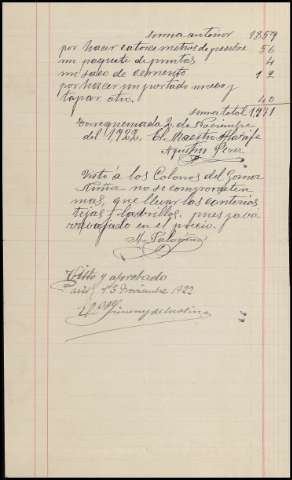 suma anterior 1859
por hacer catorce metros de pesebre 56
un paquete de puntas 4
un saco de cemento 12
por hacer un portado nuevo y
tapar otro. 40
suma total 1971
Torrequemada 2 de Noviembre
del 1922. El Maestro Alarife
Agustin Perez
Visto á los Colonos del
no se comprometen
mas, que llevar las
tejas y ladrillos, pues
rebajado en el precio.
Visto y aprobado
Paris 15 Noviembre 1922